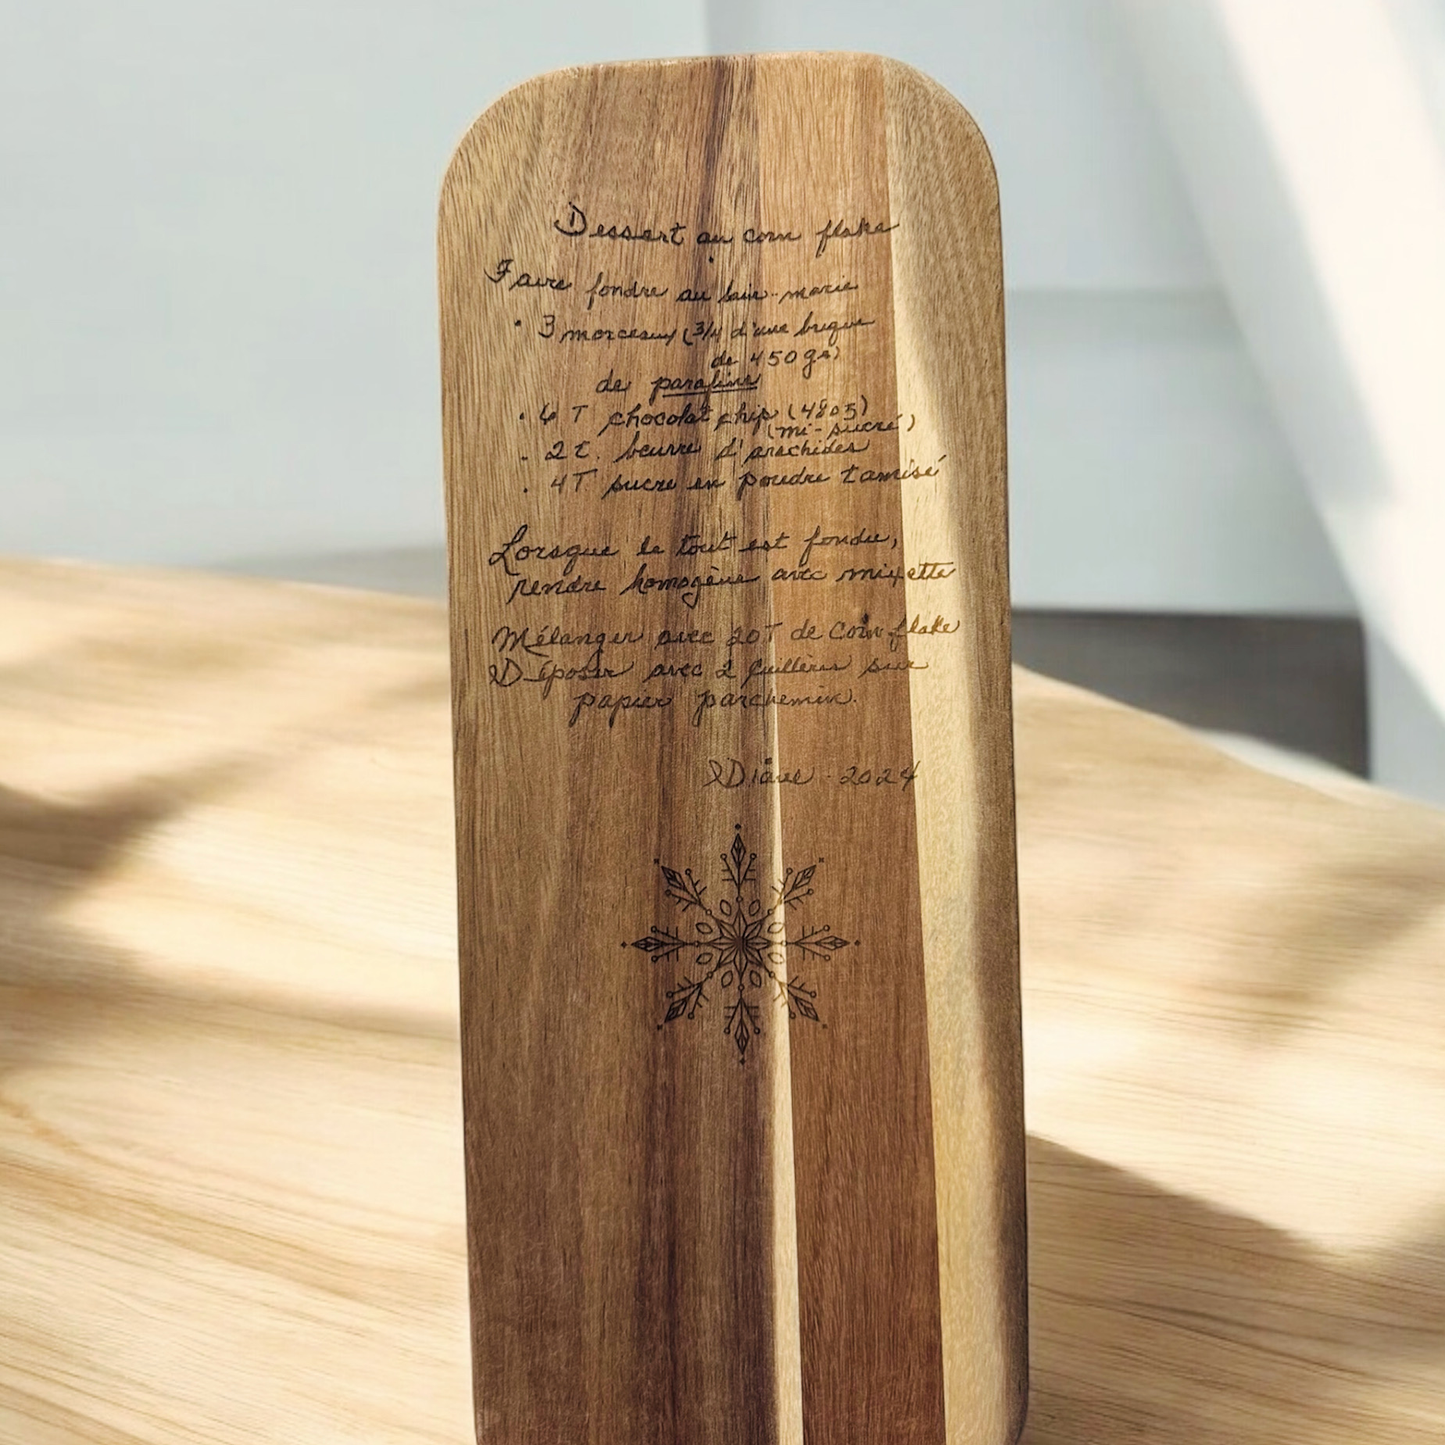 Dessert au corn flake
Faire fondre au bain-marie
• 3 morceaux (3/4 d'une brique
de 450 gr)
de parafine
• 6 T chocolat chip (480g)
(mi-sucré)
• 2 t. beurre d'arachides
• 4T sucre en poudre tamisé
Lorsque le tout est fondu,
rendre homogène avec mixette
Mélanger avec 20T de Corn flake
Déposer avec 2 cuillères sur
papier parchemin.
Diane - 2024